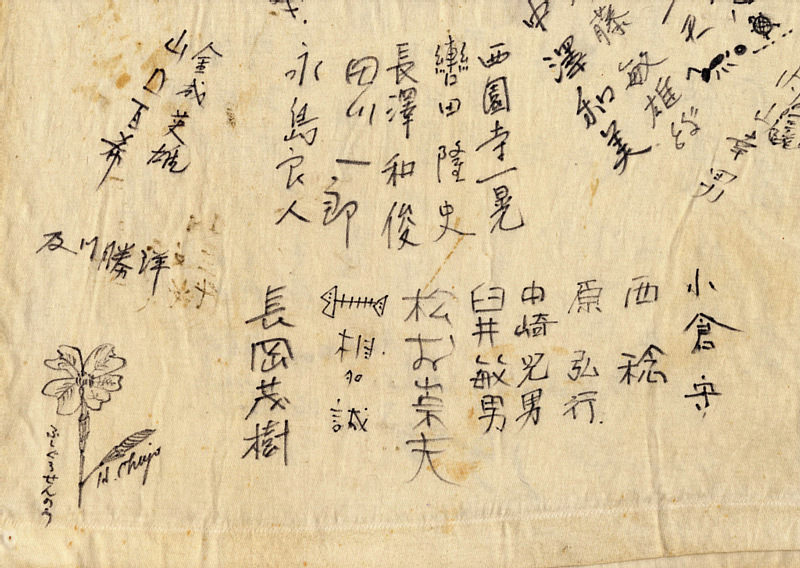 小倉守
西稔
原弘行
中崎光男
臼井敏男
松お崇夫
長岡茂樹
幸男
藤敏雄
中澤和美
西園寺一晃
轡田隆史
長澤和俊
田川一郎
永島良人
金城英雄
山口百希
及川勝洋
ふしぐろせんのう
H. Chujo